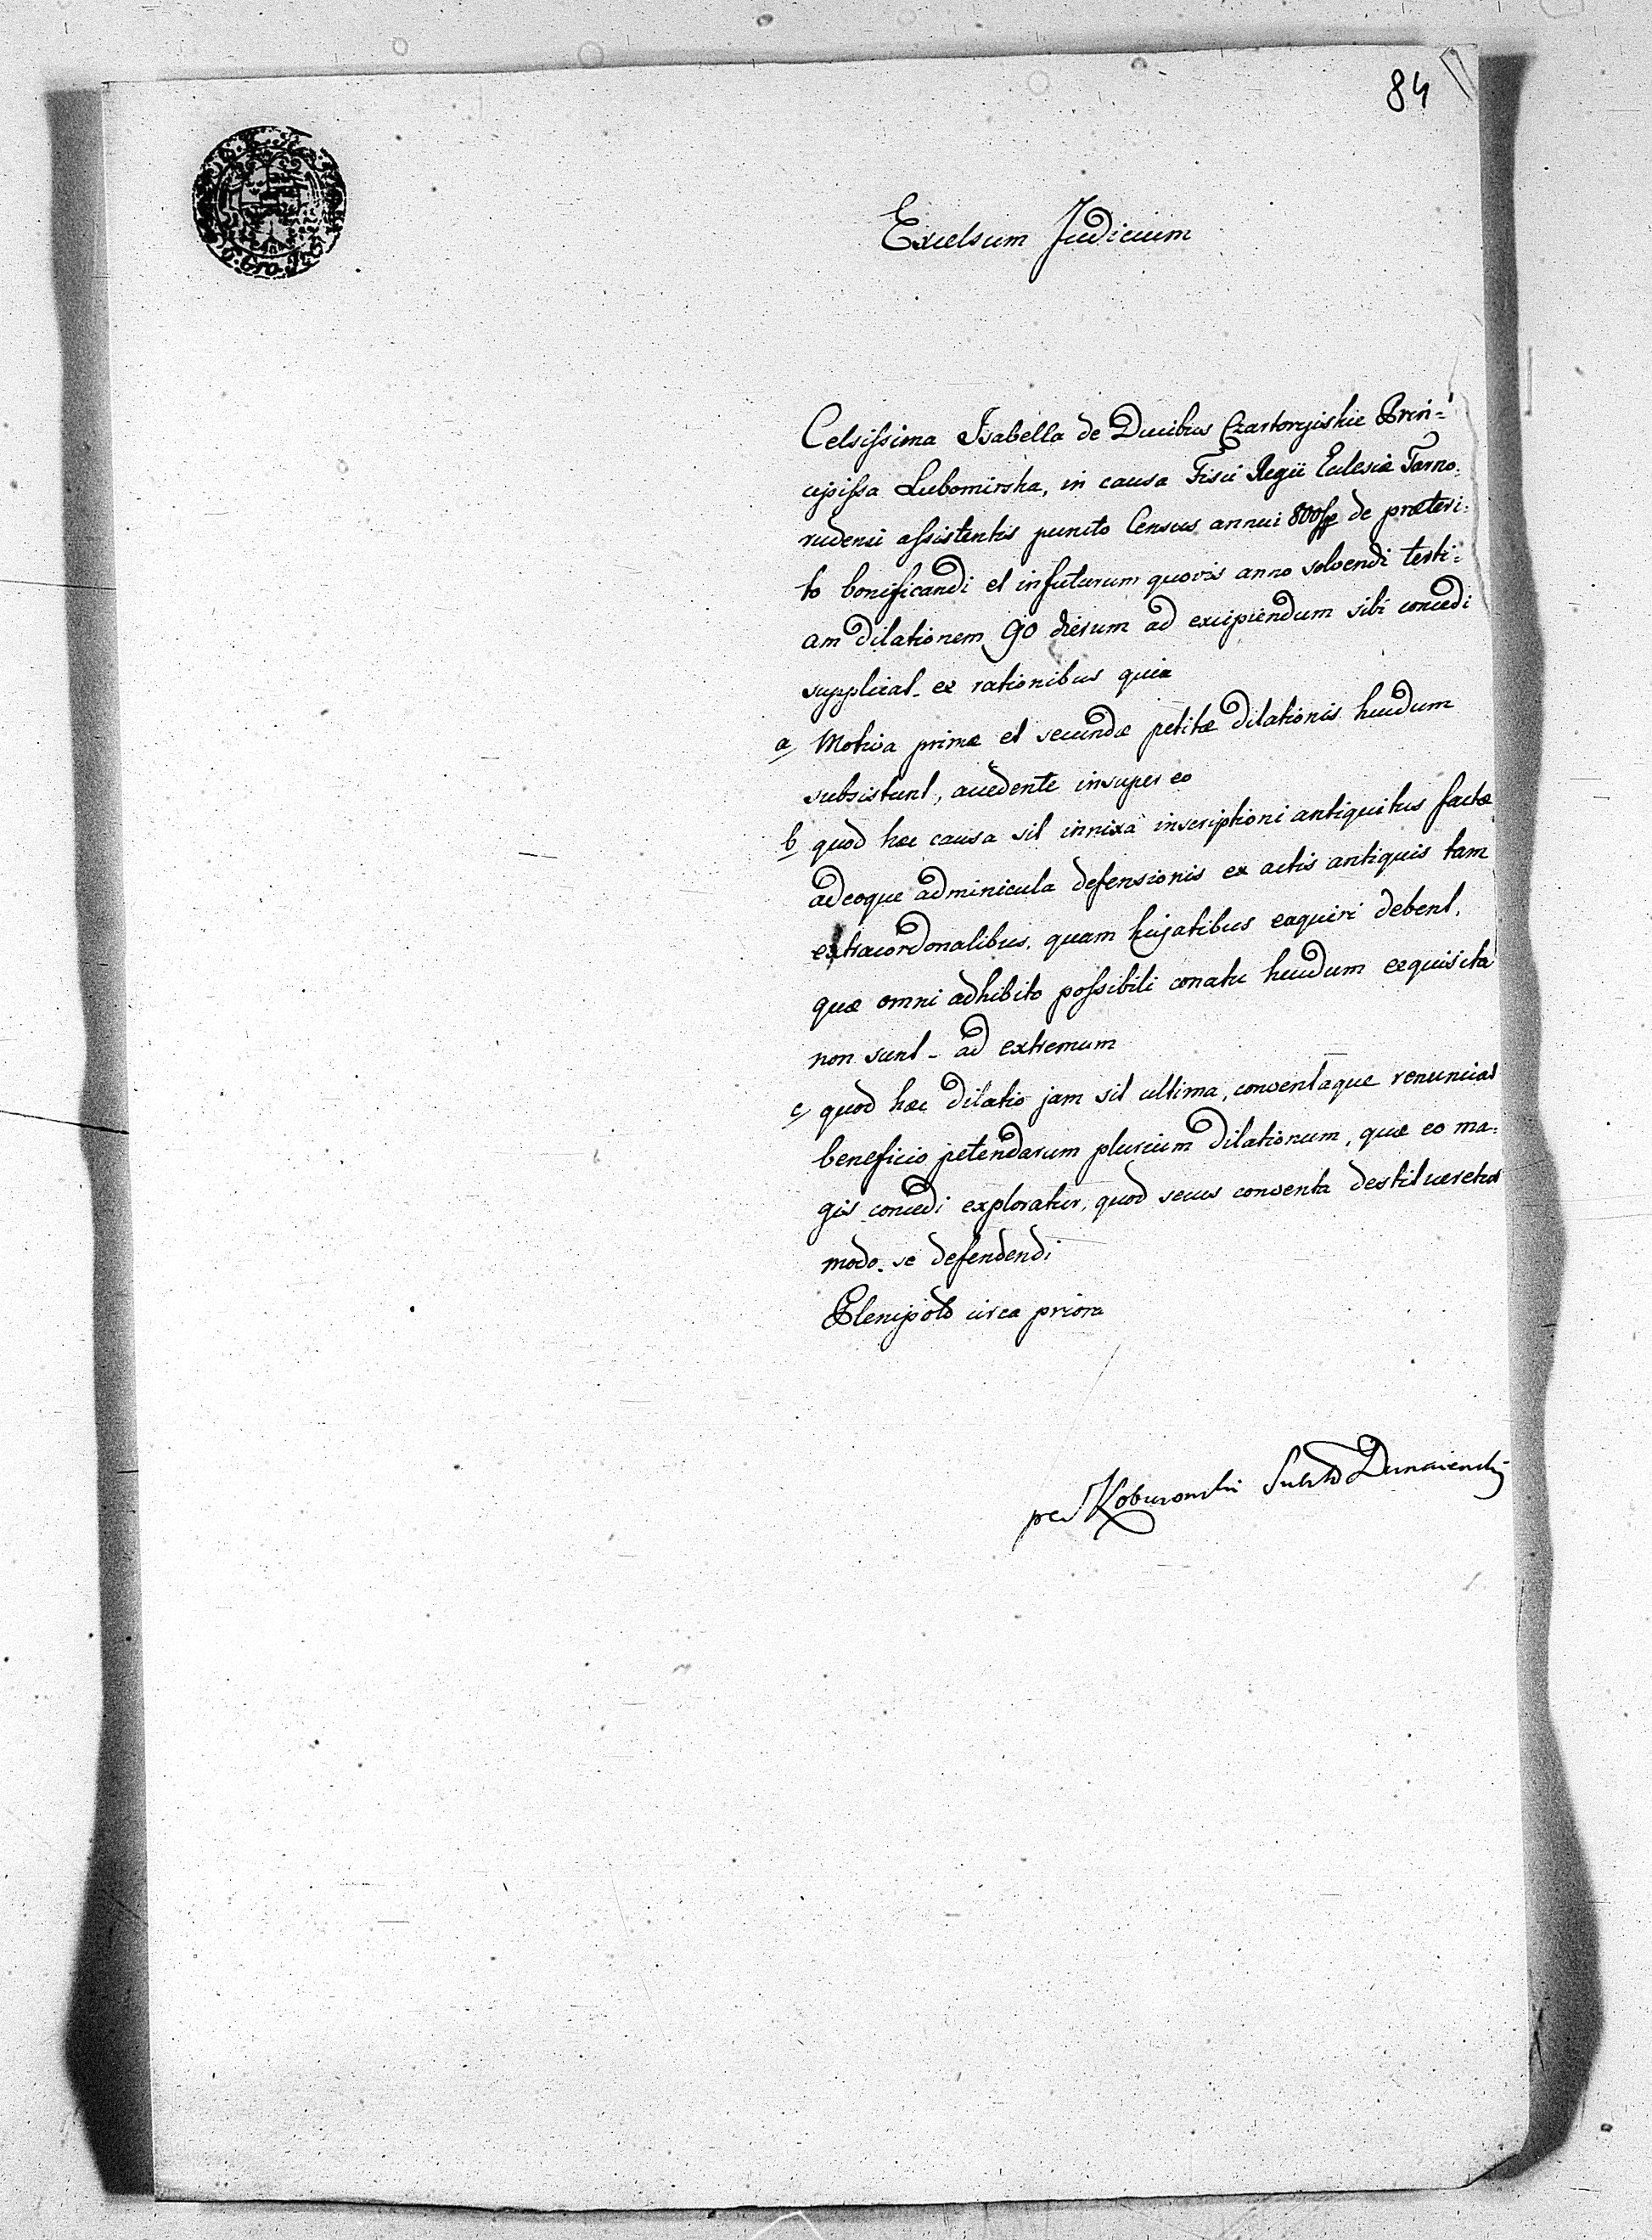 84
Excelsum Judicium
Celsissima Isabella de Ducibus Czartoryiskie Prin=
cipissa Lubomirska, in causa Fisci Regii Eclesiæ Tarno=
rudensi assistentis puncto Census annui 800 de præteri=
to bonificandi et in futurum quovis anno solvendi terti=
am dilationem 90 dierum ad excipiendum sibi concedi
supplicat_ ex rationibus quia
a Motiva primæ et secundæ petitæ dilationis hucdum
subsistunt, accedente insuper eo
b quod hæc causa sit innixa inscriptioni antiquitus factæ
adeoque adminicula defensionis ex actis antiquis tam
extracordonalibus, quam hujatibus exquiri debent,
quæ omni adhibito possibili conatu hucdum exquisita
non sunt _ ad extremum
c quod hæc dilatio jam sit ultima, conventaque renunciat
beneficio petendarum plurium dilationum, quæ eo ma=
gis concedi exploratur, quod secus conventa destitueretur
modo se defendendi
Plenipoto circa priora
per Koburowski Dunaiewski